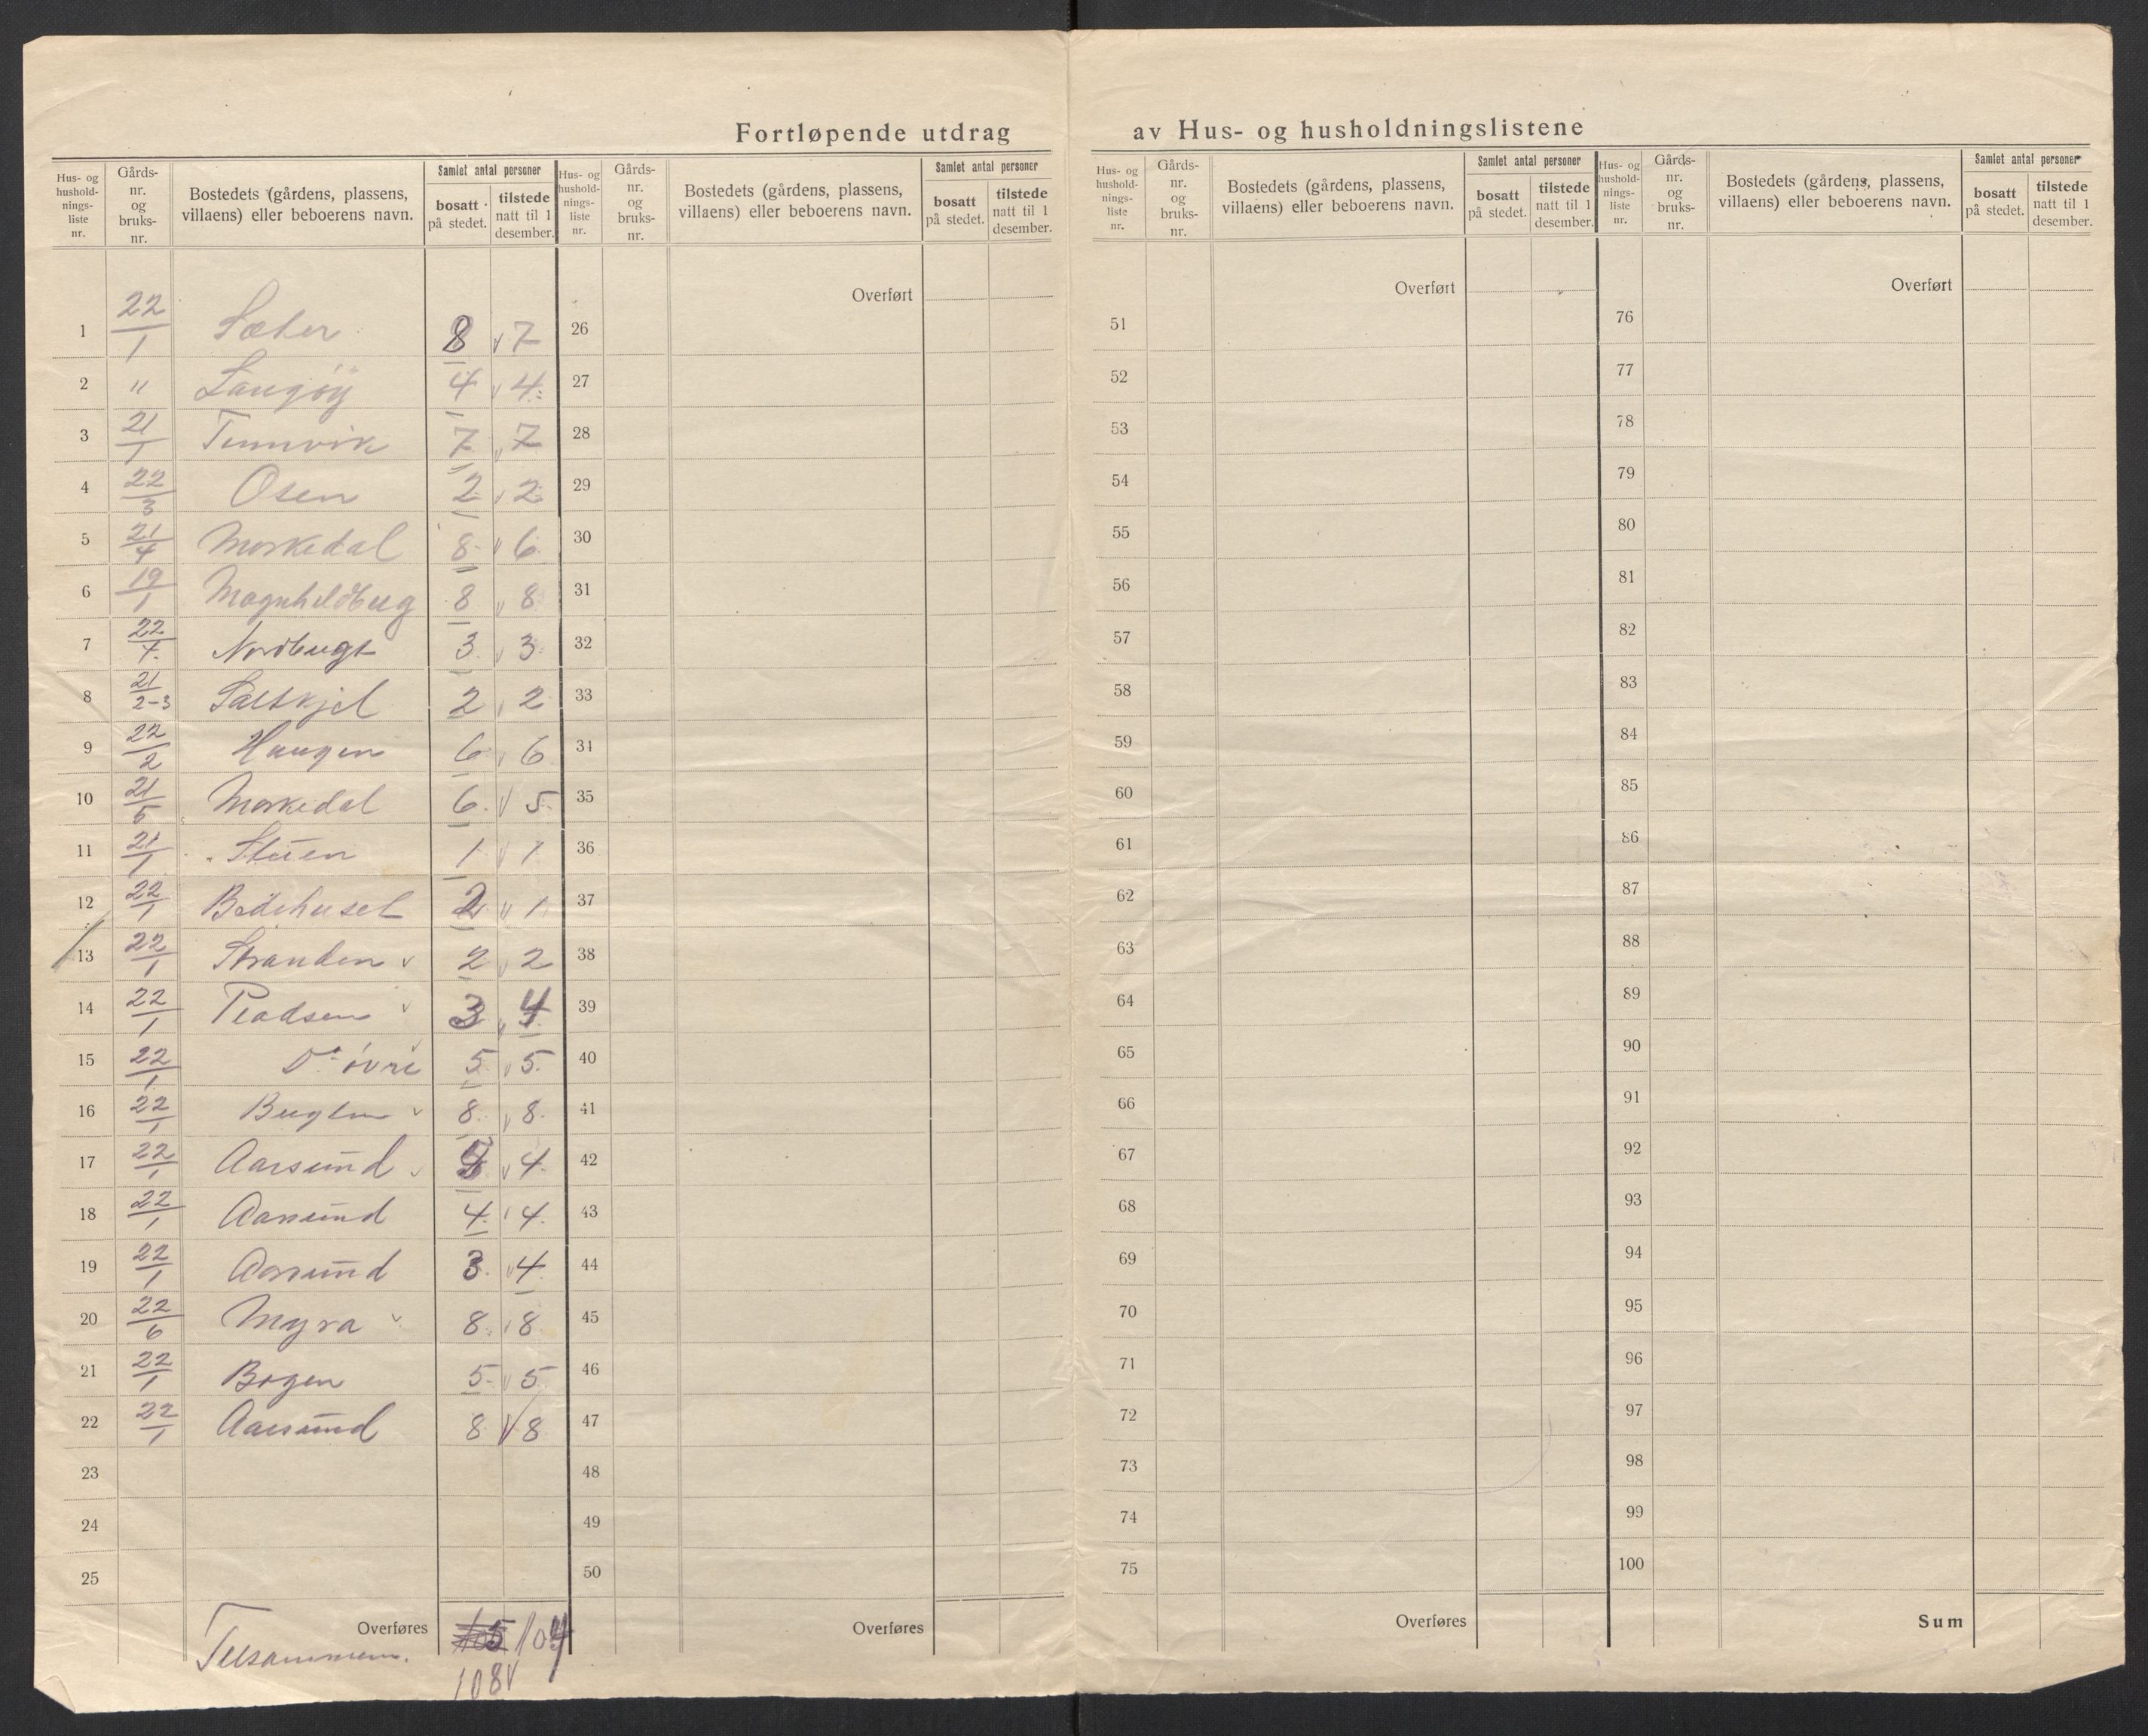 Fortløpende utdrag av Hus- og husholdningslistene
Hus- og hushold- nings- liste nr. | Gårds- nr. og bruks- nr. | Bostedets (gårdens, plassens, villaens) eller beboerens navn. | Samlet antal personer | bosatt på stedet. | tilstede natt til 1 desember.
Hus- og hushold- nings- liste nr. | Gårds- nr. og bruks- nr. | Bostedets (gårdens, plassens, villaens) eller beboerens navn. | Samlet antal personer | bosatt på stedet. | tilstede natt til 1 desember.
Hus- og hushold- nings- liste nr. | Gårds- nr. og bruks- nr. | Bostedets (gårdens, plassens, villaens) eller beboerens navn. | Samlet antal personer | bosatt på stedet. | tilstede natt til 1 desember.
Hus- og hushold- nings- liste nr. | Gårds- nr. og bruks- nr. | Bostedets (gårdens, plassens, villaens) eller beboerens navn. | Samlet antal personer | bosatt på stedet. | tilstede natt til 1 desember.
Overført Overført Overført
1 22/1 Sæter 8 7 26 51 76
2 " Langöy 4 4 27 52 77
3 21/1 Tennvik 7 7 28 53 78
4 22/3 Osen 2 2 29 54 79
5 21/4 Morkedal 8 6 30 55 80
6 19/1 Magnhildbug 8 8 31 56 81
7 22/7 Nordbugt 3 3 32 57 82
8 21/2-3 Saltskjel 2 2 33 58 83
9 22/2 Haugen 6 6 34 59 84
10 21/5 Morkedal 6 5 35 60 85
11 21/1 Stuen 1 1 36 61 86
12 22/1 Bedehuset 2 1 37 62 87
13 22/1 Stranden 2 2 38 63 88
14 22/1 3 4 39 64 89
15 22/1 Do övre 5 5 40 65 90
16 22/1 Bugten 8 8 41 66 91
17 22/1 Aarsund 4 42 67 92
18 22/1 Aarsund 4 4 43 68 93
19 22/1 Aarsund 3 4 44 69 94
20 22/6 Myra 8 8 45 70 95
21 22/1 Bogen 5 5 46 71 96
22 22/1 Aarsund 8 8 47 72 97
23 48 73 98
24 49 74 99
25 50 75 100
Overføres 104 Overføres Overføres Sum
Tilsammen. 108